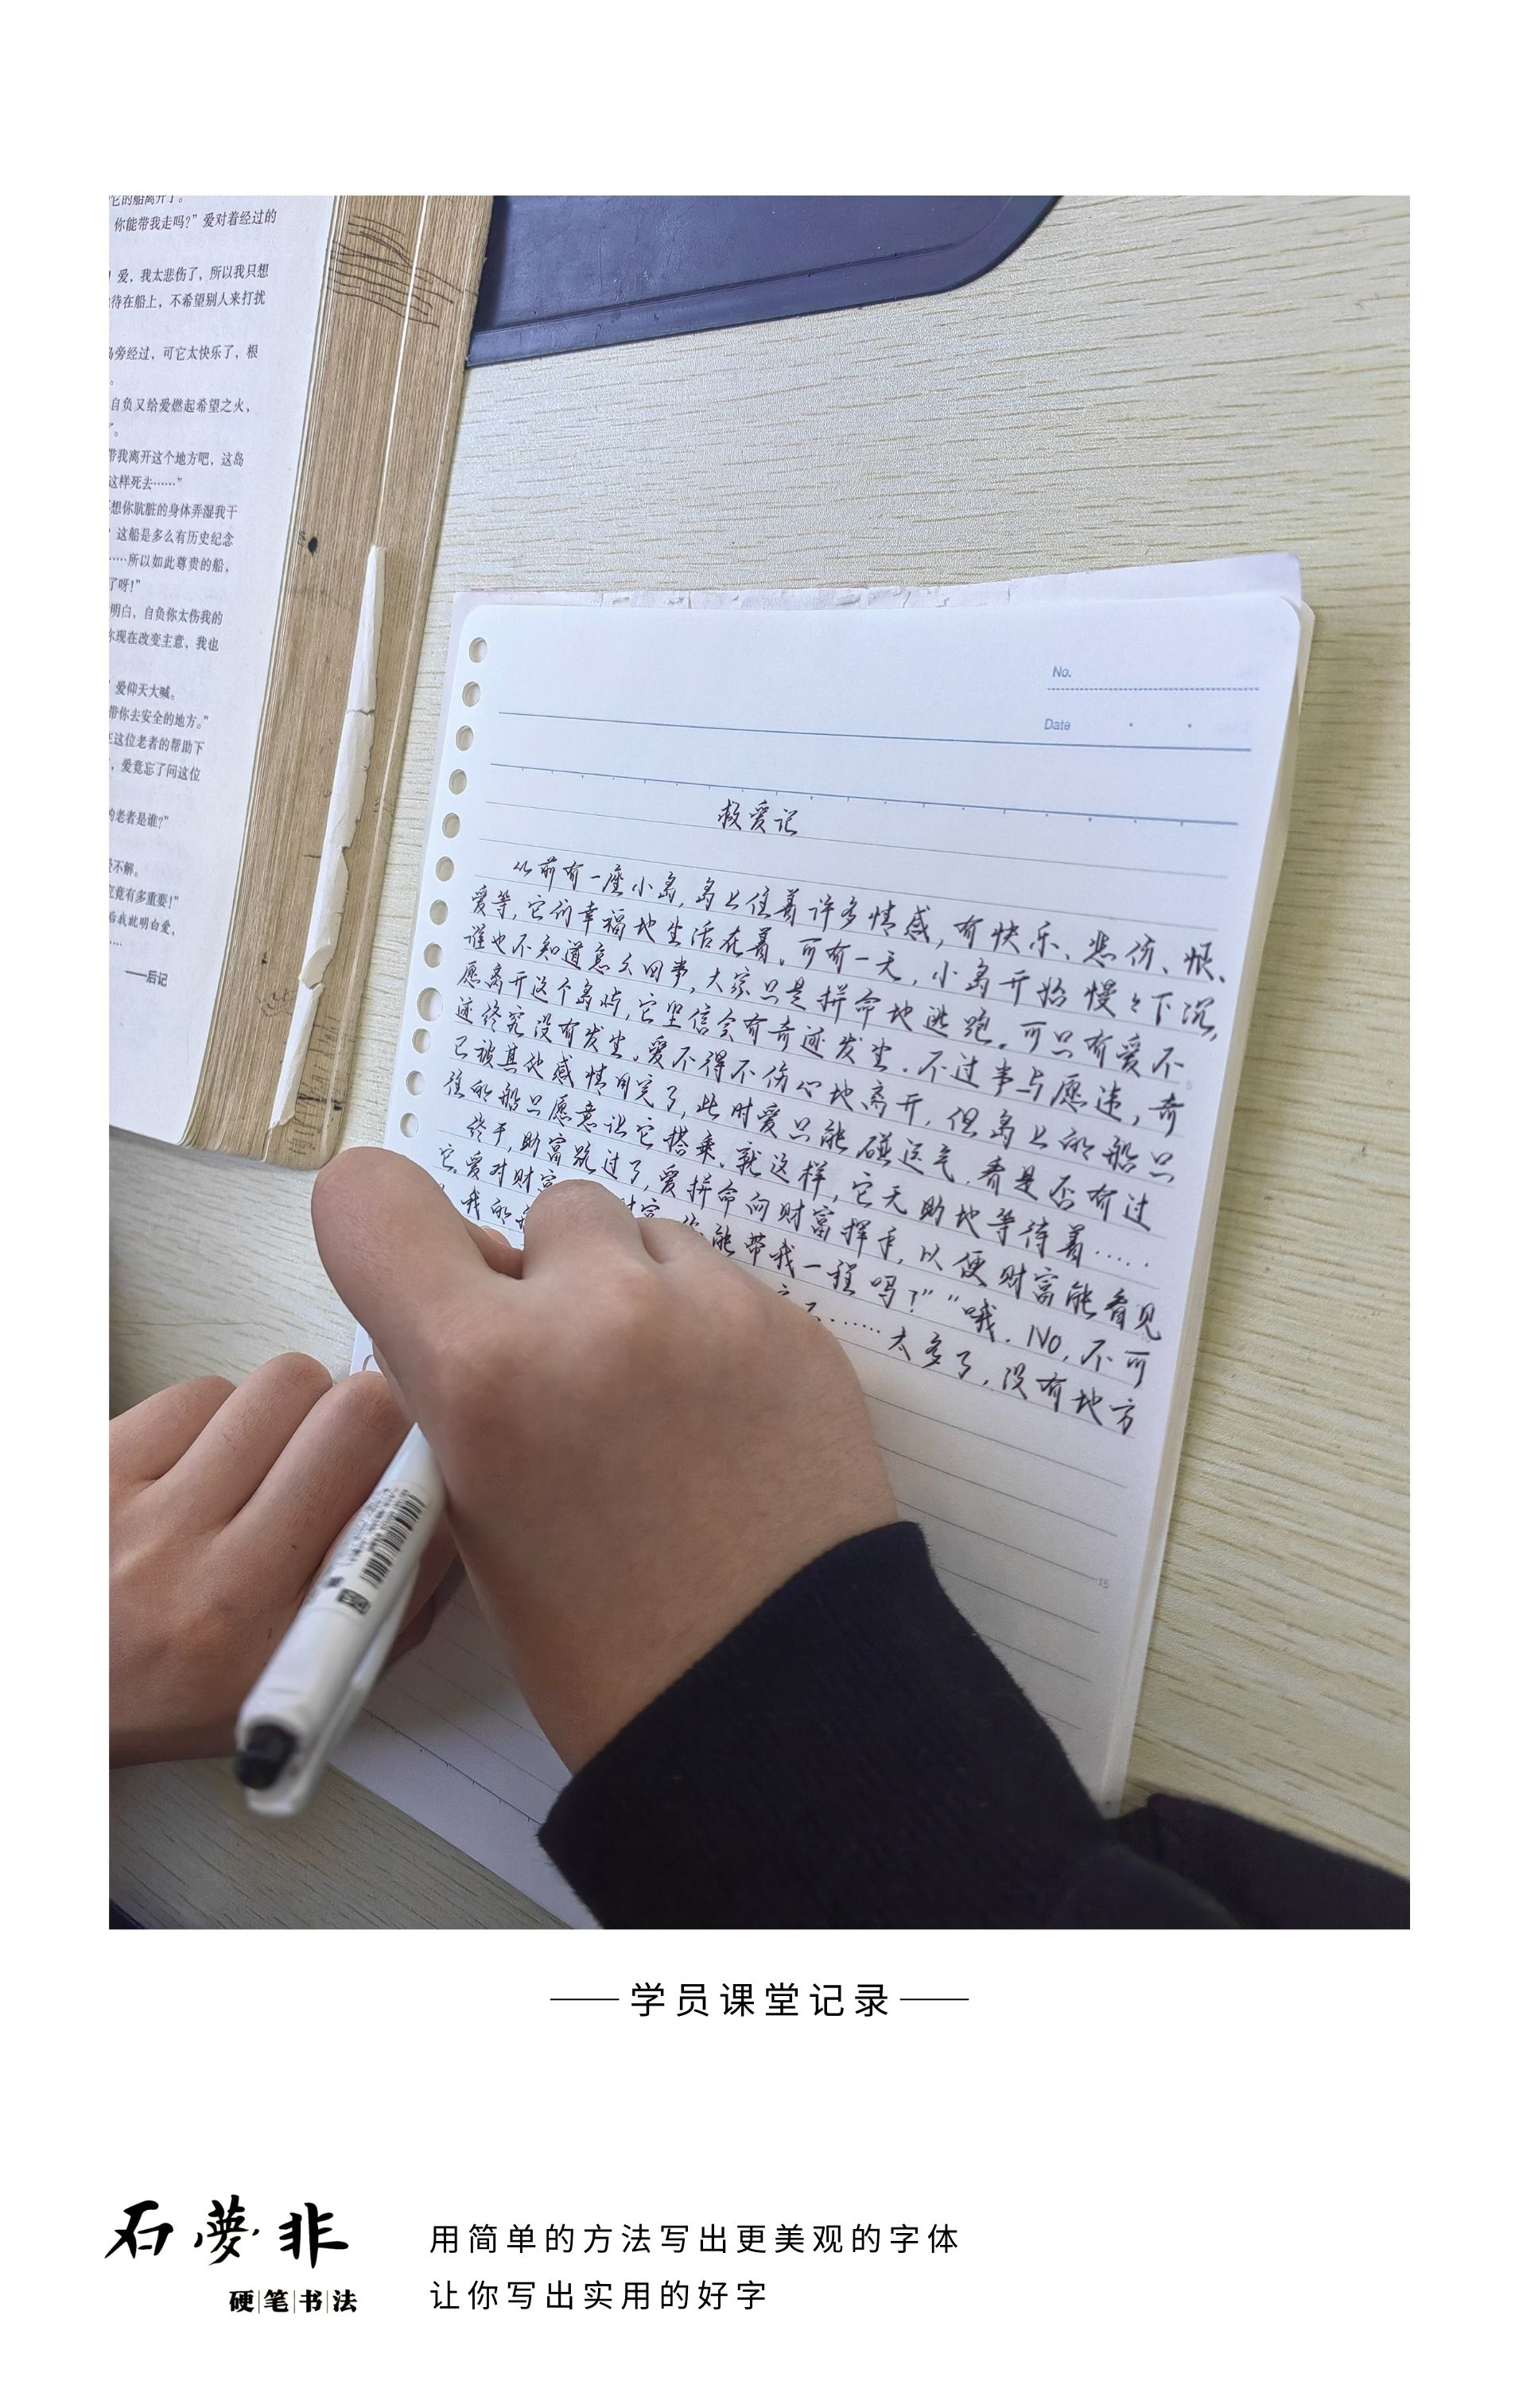 它的船离开了。
你能带我走吗?”爱对着经过的
爱，我太悲伤了，所以我只想
待在船上，不希望别人来打扰
旁经过，可它太快乐了，根
自负又给爱燃起希望之火，
了。
带我离开这个地方吧，这岛
这样死去……”
想你肮脏的身体弄湿我干
这船是多么有历史纪念
……所以如此尊贵的船，
了呀!”
明白，自负你太伤我的
你现在改变主意，我也
爱仰天大喊。
带你去安全的地方。”
在这位老者的帮助下
，爱竟忘了问这位
的老者是谁?”
不解。
究竟有多重要!”
后我就明白爱，
……
——后记
No.
Date
救爱记
从前有一座小岛，岛上住着许多情感，有快乐、悲伤、恨、
爱等，它们幸福地生活在着。可有一天，小岛开始慢々下沉，
谁也不知道怎么回事，大家只是拼命地逃跑。可只有爱不
愿离开这个岛屿，它坚信会有奇迹发生。不过事与愿违，奇
迹终究没有发生。爱不得不伤心地离开，但岛上的船只
已被其他感情用完了，此时爱只能碰运气，看是否有过
往的船只愿意让它搭乘。就这样，它无助地等待着……
终于，财富路过了，爱拼命向财富挥手，以便财富能看见
它。爱对财富 财富，你能带我一程吗?”“哦。No，不可
我的 ……太多了，没有地方
5
15
学员课堂记录
石夢非
硬笔书法
用简单的方法写出更美观的字体
让你写出实用的好字